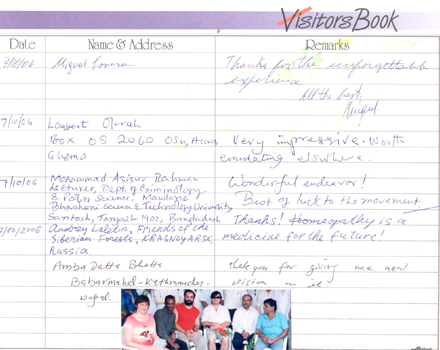 Visitors Book
Date Name & Address Remarks
Miguel
Thanks for the unforgettable
experience
All the best,
Miguel
7/10/06 Lambert Okrah
Box OS 2060 Osu, Accra,
Ghana
Very impressive. Worth
emulating elswhere.
7/10/06 Mohammad Azizur Rahman
Lecturer, Dept. of Criminology
& Police Science, Mawlana
Bhashani Science & Technology University
Santosh, Tangail 1902, Bangladesh
Wonderful endeavor!
Best of luck to the movement
7/10/2006 Andrey Laletin, Friends of the
Siberian Forests, KRASNOYARSK,
Russia
Thanks! Homeopathy is a
medicine for the future!
Amba Datta Bhatta
Babarmahal - Kathmandu.
Nepal.
Thank you for giving me a new
vision